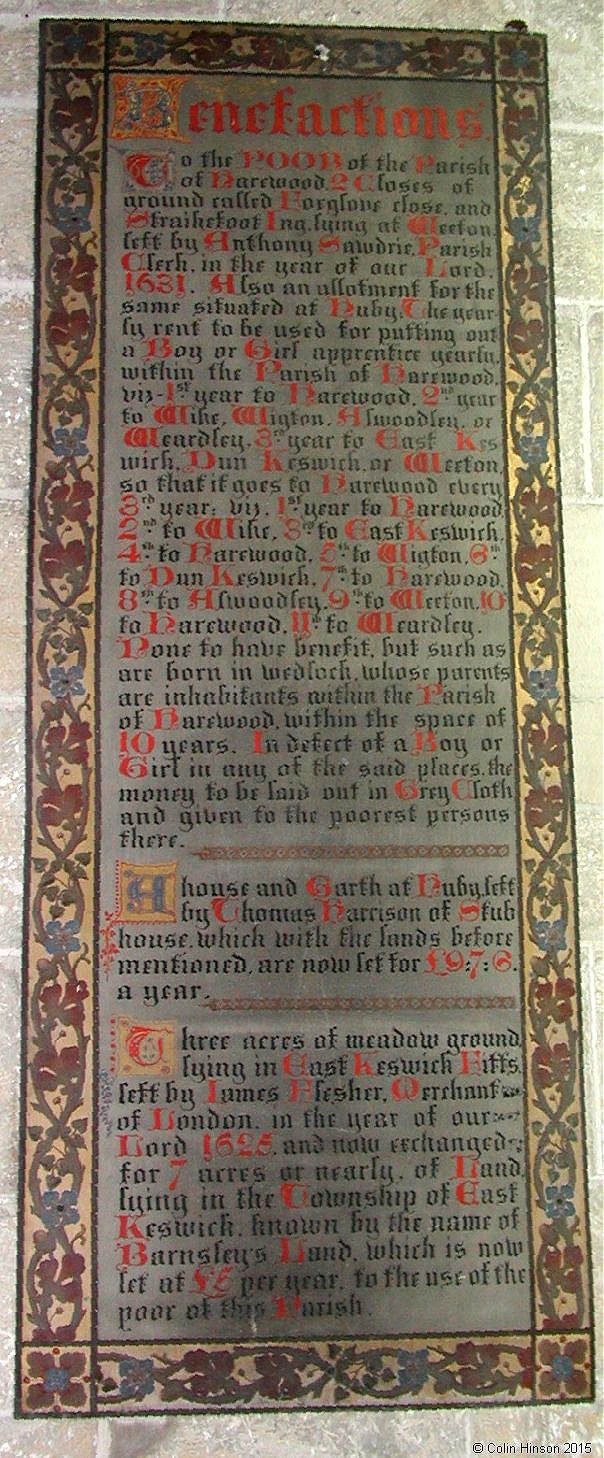 Benefactions.
To the POOR of the Parish
of Harewood, 2 Closes of
ground called Foxglove close, and
Straikefoot Ing, lying at Weeton,
left by Anthony Sawdrie, Parish
Clerk, in the year of our Lord,
1631. Also an allotment for the
same situated at Huby. The year-
ly rent to be used for putting out
a Boy or Girl apprentice yearly,
within the Parish of Harewood,
viz-1st year to Harewood, 2nd year
to Wike, Wigton, Alwoodley, or
Weardley, 3rd year to East Kes-
wich, Dun Keswich, or Weeton,
so that it goes to Harewood every
3rd year: viz, 1st year to Harewood,
2nd to Wike, 3rd to East Keswich,
4th to Harewood, 5th to Wigton, 6th
to Dun Keswich, 7th to Harewood,
8th to Alwoodley, 9th to Weeton, 10th
to Harewood, 11th to Weardley.
None to have benefit, but such as
are born in wedlock, whose parents
are inhabitants within the Parish
of Harewood, within the space of
10 years. In defect of a Boy or
Girl in any of the said places, the
money to be laid out in Grey Cloth
and given to the poorest persons
there.
A house and Garth at Huby, left
by Thomas Harrison of Stub
house, which with the lands before
mentioned, are now let for £97:6.
a year.
Three acres of meadow ground,
lying in East Keswich Fitts,
left by James Flesher, Merchant
of London, in the year of our
Lord 1625, and now exchanged
for 7 acres or nearly, of Land,
lying in the Township of East
Keswich, known by the name of
Barnsley's Land, which is now
let at £5 per year, to the use of the
poor of this Parish.
© Colin Hinson 2015